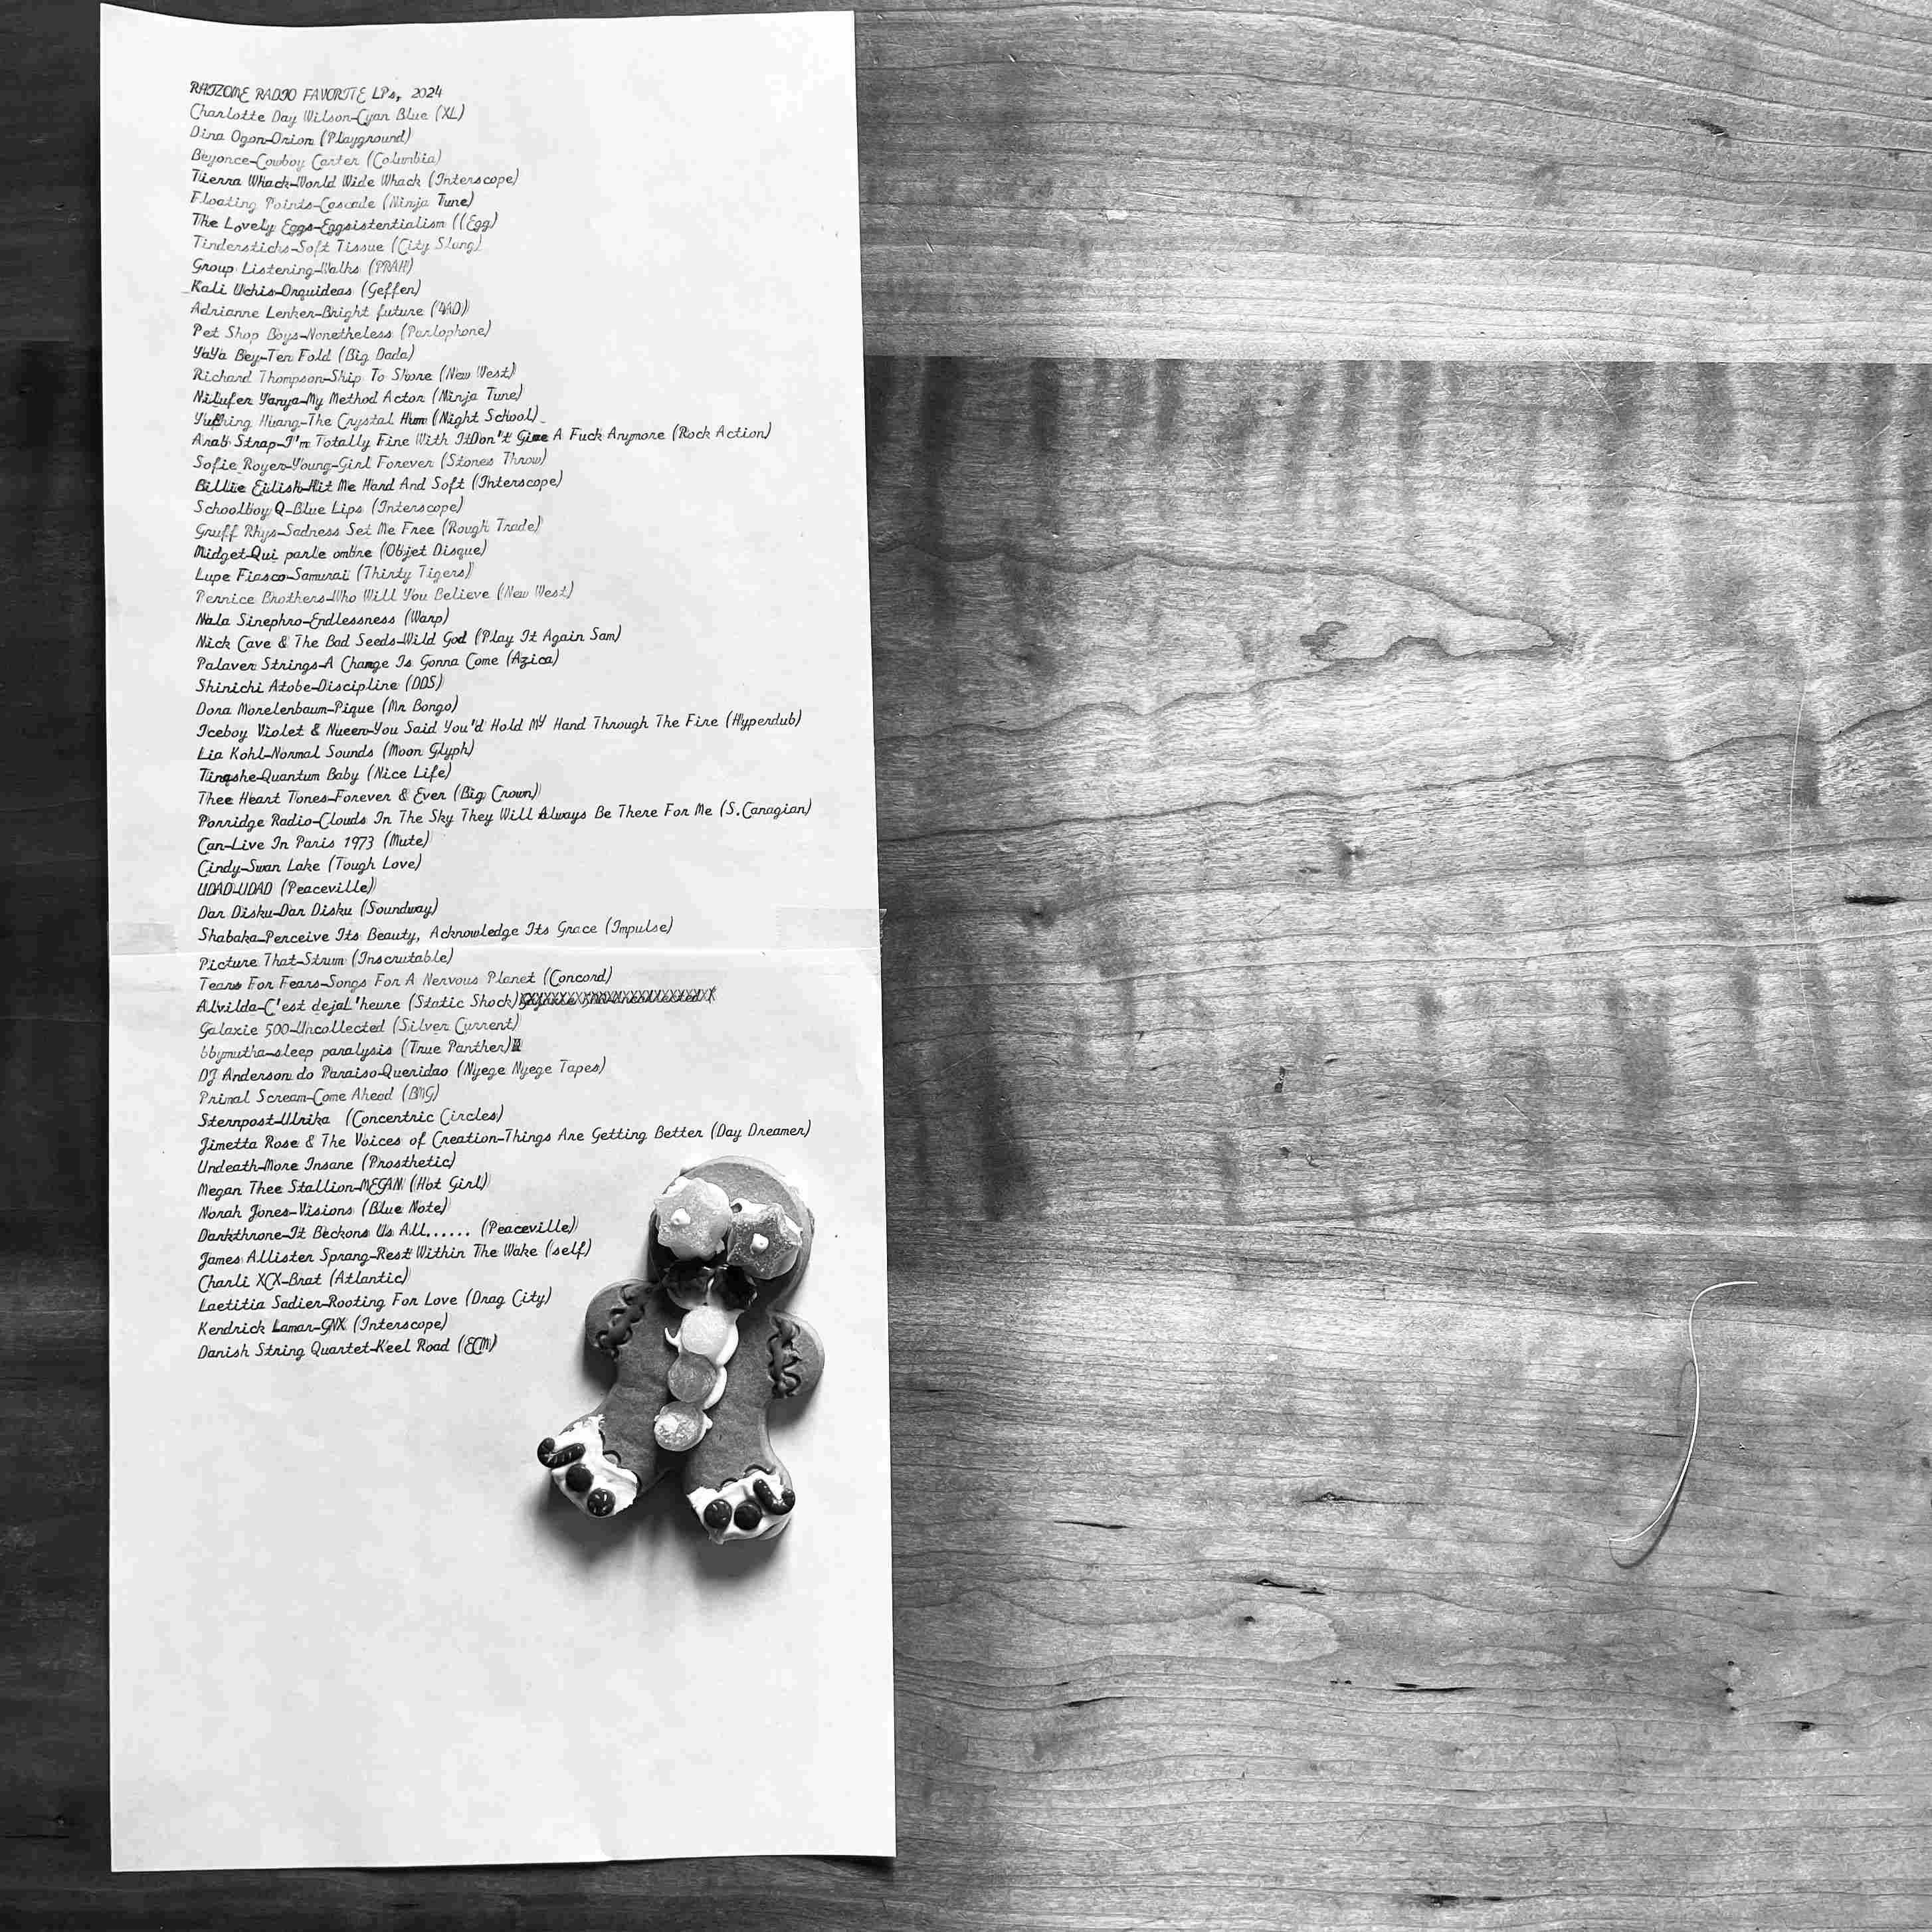 RHIZOME RADIO FAVORITE LPs, 2024
Charlotte Day Wilson-Cyan Blue (XL)
Dina Ogon-Orion (Playground)
Beyonce-Cowboy Carter (Columbia)
Tierra Whack-World Wide Whack (Interscope)
Floating Points-Cascade (Ninja Tune)
The Lovely Eggs-Eggsistentialism ((Egg)
Tindersticks-Soft Tissue (City Slang)
Group Listening-Walks (PRAH)
Kali Uchis-Orquideas (Geffen)
Adrianne Lenker-Bright future (4AD)
Pet Shop Boys-Nonetheless (Parlophone)
YaYa Bey-Ten Fold (Big Dada)
Richard Thompson-Ship To Shore (New West)
Nilufer Yanya-My Method Actor (Ninja Tune)
Yuching Huang-The Crystal Hum (Night School)
Arab Strap-I'm Totally Fine With ItDon't Give A Fuck Anymore (Rock Action)
Sofie Royer-Young-Girl Forever (Stones Throw)
Billie Eilish-Hit Me Hard And Soft (Interscope)
Schoolboy Q-Blue Lips (Interscope)
Gruff Rhys-Sadness Set Me Free (Rough Trade)
Midget-Qui parle ombre (Objet Disque)
Lupe Fiasco-Samurai (Thirty Tigers)
Pernice Brothers-Who Will You Believe (New West)
Nala Sinephro-Endlessness (Warp)
Nick Cave & The Bad Seeds-Wild God (Play It Again Sam)
Palaver Strings-A Change Is Gonna Come (Azica)
Shinichi Atobe-Discipline (DDS)
Dora Morelenbaum-Pique (Mr Bongo)
Iceboy Violet & Nueen-You Said You'd Hold MY Hand Through The Fire (Hyperdub)
Lia Kohl-Normal Sounds (Moon Glyph)
Tinashe-Quantum Baby (Nice Life)
Thee Heart Tones-Forever & Ever (Big Crown)
Porridge Radio-Clouds In The Sky They Will Always Be There For Me (S.Canagian)
Can-Live In Paris 1973 (Mute)
Cindy-Swan Lake (Tough Love)
UDAD-UDAD (Peaceville)
Dar Disku-Dar Disku (Soundway)
Shabaka-Perceive Its Beauty, Acknowledge Its Grace (Impulse)
Picture That-Strum (Inscrutable)
Tears For Fears-Songs For A Nervous Planet (Concord)
Alvilda-C'est dejaL'heure (Static Shock)
Galaxie 500-Uncollected (Silver Current)
bbymutha-sleep paralysis (True Panther)
DJ Anderson do Paraiso-Queridao (Nyege Nyege Tapes)
Primal Scream-Come Ahead (BMG)
Sternpost-Ulrika (Concentric Circles)
Jimetta Rose & The Voices of Creation-Things Are Getting Better (Day Dreamer)
Undeath-More Insane (Prosthetic)
Megan Thee Stallion-MEGAN (Hot Girl)
Norah Jones-Visions (Blue Note)
Darkthrone-It Beckons Us All...... (Peaceville)
James Allister Sprang-Rest Within The Wake (self)
Charli XCX-Brat (Atlantic)
Laetitia Sadier-Rooting For Love (Drag City)
Kendrick Lamar-GNX (Interscope)
Danish String Quartet-Keel Road (ECM)